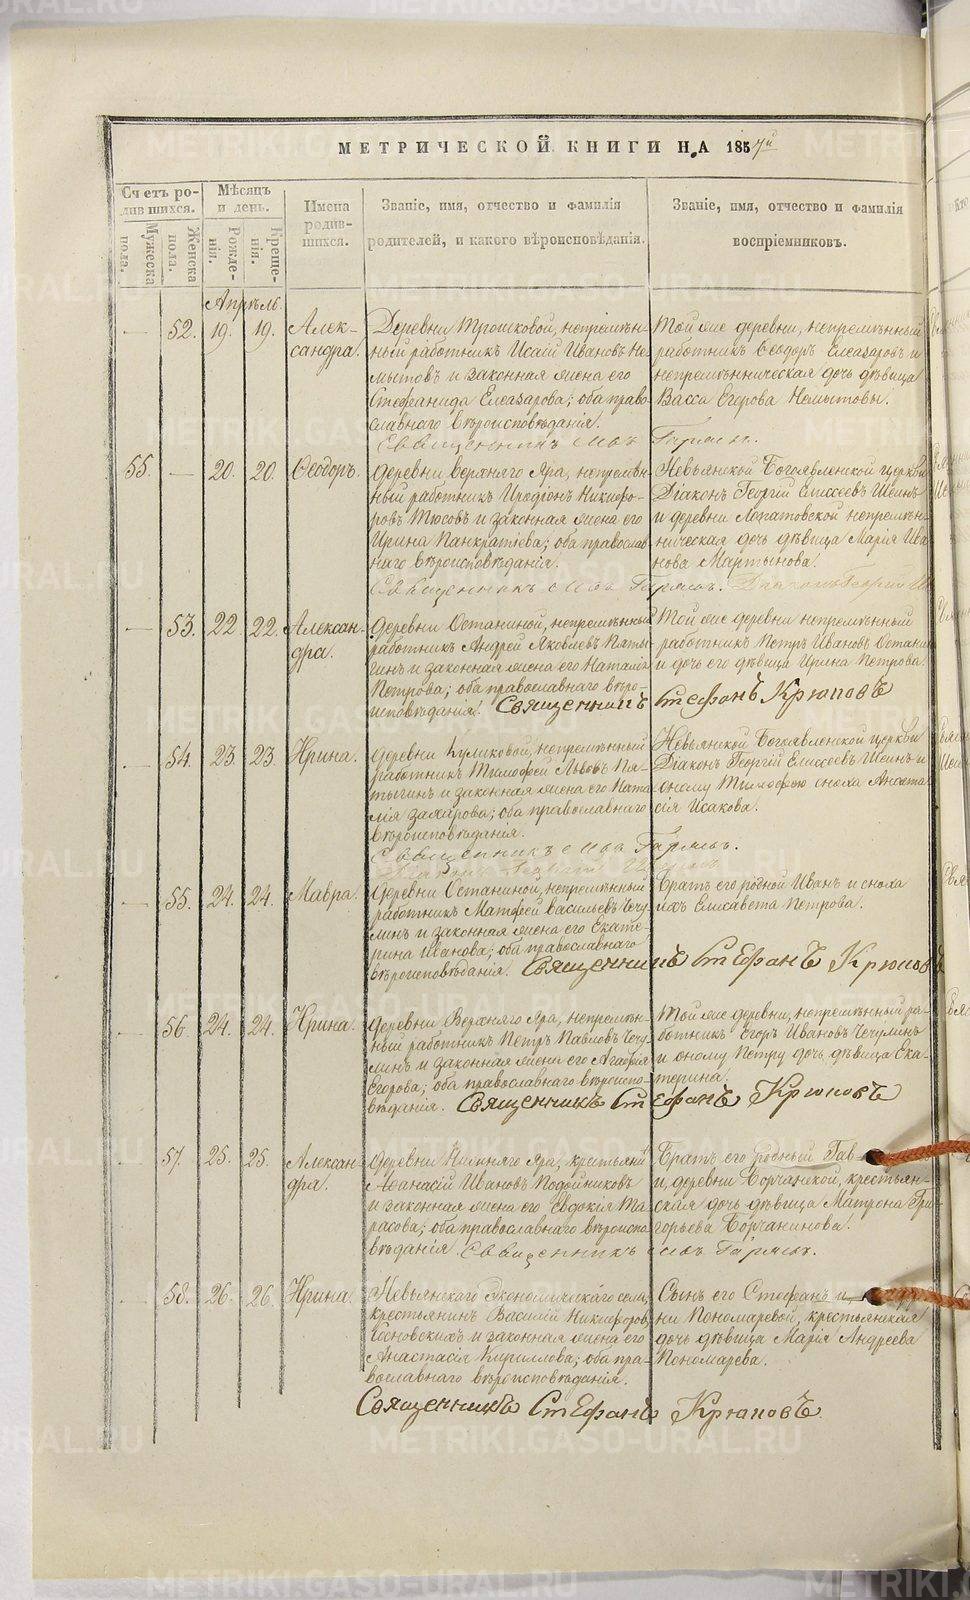 МЕТРИЧЕСКОЙ КНИГИ НА 1857й
Счетъ родившихся.
Мужеска пола.
Женска пола.
Мѣсяцъ и день.
Рожденія.
Крещенія.
Имена родившихся.
Званіе, имя, отчество и фамилія
родителей, и какого вѣроисповѣданія.
Званіе, имя, отчество и фамилія
воспріемниковъ.
Апрѣль.
52. 19. 19.
Алек-
сандра.
Деревни Трошковой, непремѣн-
ный работникъ Исаій Ивановъ Не-
мытовъ и законная жена его
Стефанида Елеазарова; оба право-
славнаго вѣроисповѣданія.
Той же деревни, непремѣнный
работникъ Ѳеодоръ Елеазаровъ и
непремѣнническая дочь дѣвица
Васса Егорова Немытовы.
Священникъ
55. 20. 20. Ѳеодоръ.
Деревни Верхняго Яра, непремѣн-
ный работникъ Иродіонъ Никифо-
ровъ Тюсовъ и законная жена его
Ирина Панкратіева; оба православ-
наго вѣроисповѣданія.
Невьянской Богоявленской церкви
Діаконъ Георгій Елисеевъ Шеинъ
и деревни Лопатовской непремѣн-
ническая дочь дѣвица Марія Ива-
нова Мартынова.
Священникъ
53. 22. 22.
Алексан-
дра.
Деревни Останиной, непремѣнный
работникъ Андрей Яковлевъ Пяты-
гинъ и законная жена его Наталія
Петрова; оба православнаго вѣро-
исповѣданія.
Той же деревни непремѣнный
работникъ Петръ Ивановъ Останин
и дочь его дѣвица Ирина Петрова.
Священникъ Стефанъ Крюповъ
54. 23. 23. Ирина.
Деревни Куликовой, непремѣнный
работникъ Тимофей Львовъ Пя-
тыгинъ и законная жена его Ната-
лія Захарова; оба православнаго
вѣроисповѣданія.
Невьянской Богоявленской церкви
Діаконъ Георгій Елисеевъ Шеинъ и
оному Тимофею сноха Анаста-
сія Исакова.
Священникъ
55. 24. 24. Мавра.
Деревни Останиной, непремѣнный
работникъ Матфей Васильевъ Чечу-
линъ и законная жена его Екате-
рина Иванова; оба православнаго
вѣроисповѣданія.
Братъ его родной Иванъ и сноха
ихъ Елисавета Петрова.
Священникъ Стефанъ Крюповъ
56. 24. 24. Ирина.
Деревни Верхняго Яра, непремѣн-
ный работникъ Петръ Павловъ Чечу-
линъ и законная жена его Агафія
Егорова; оба православнаго вѣроиспо-
вѣданія.
Той же деревни, непремѣнный ра-
ботникъ Егоръ Ивановъ Чечулинъ
и оному Петру дочь дѣвица Ека-
терина.
Священникъ Стефанъ Крюповъ
57. 25. 25.
Алексан-
дра.
Деревни Нижняго Яра, крестьянинъ
Аѳанасій Ивановъ Подойниковъ
и законная жена его Евдокія Та-
расова; оба православнаго вѣроиспо-
вѣданія.
Братъ его родный Гав-
и, деревни Борчаниской, крестьян-
ская дочь дѣвица Матрона Гри-
горьева Борчанинова.
Священникъ
58. 26. 26. Ирина.
Невьянскаго Экономическаго села,
крестьянинъ Василій Никифоровъ
Сосновскихъ и законная жена его
Анастасія Кириллова; оба пра-
вославнаго вѣроисповѣданія.
Сынъ его Стефанъ и,
ни Пономаревой, крестьянская
дочь дѣвица Марія Андреева
Пономарева.
Священникъ Стефанъ Крюповъ
METRIKI.GASO-URAL.RU